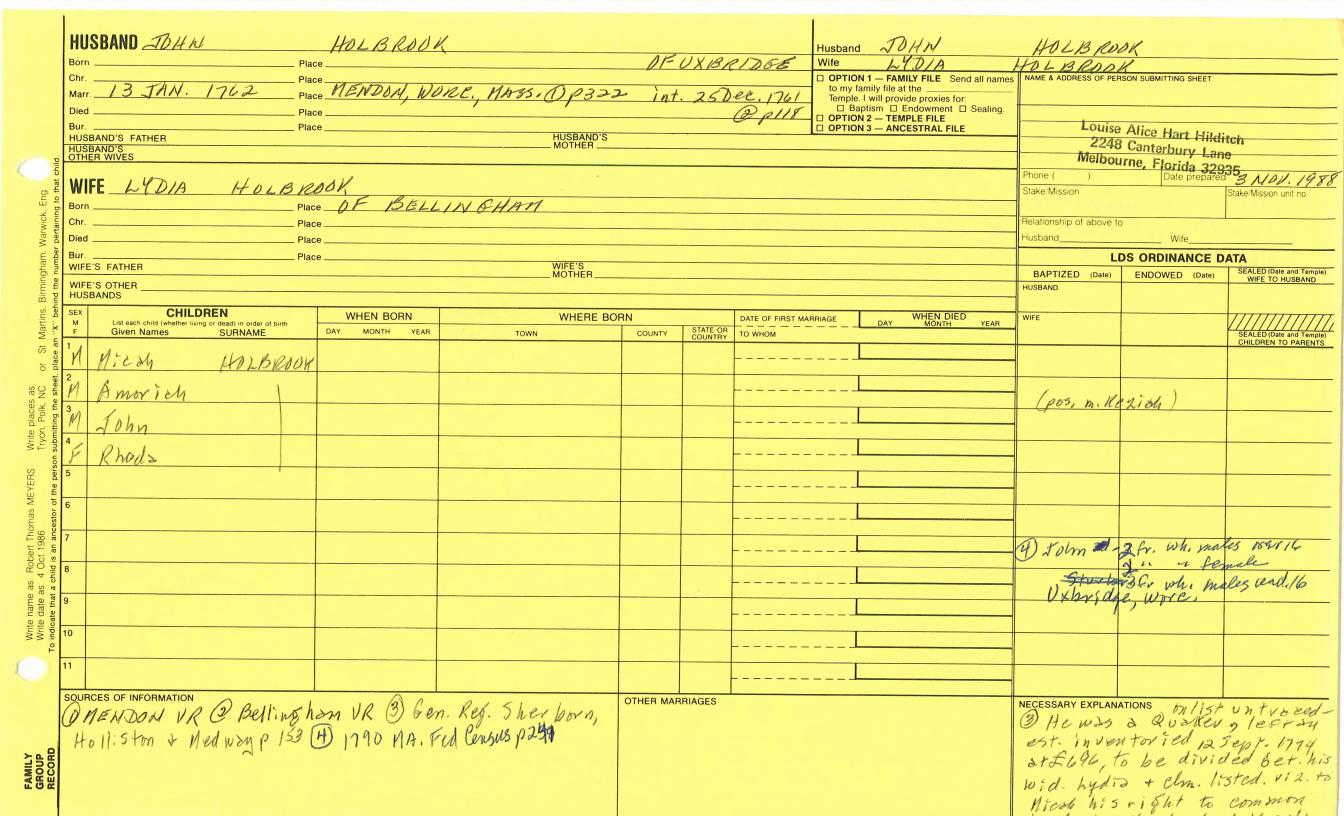 HUSBAND JOHN HOLBROOK
Born Place OF UXBRIDGE
Chr. Place
Marr. 13 JAN. 1762 Place MENDON, WORC., MASS. ① p322 int. 25 Dec. 1761
Died Place ② p118
Bur. Place
HUSBAND'S FATHER HUSBAND'S MOTHER
HUSBAND'S OTHER WIVES
WIFE LYDIA HOLBROOK
Born Place OF BELLINGHAM
Chr. Place
Died Place
Bur. Place
WIFE'S FATHER WIFE'S MOTHER
WIFE'S OTHER HUSBANDS
Husband JOHN HOLBROOK
Wife LYDIA HOLBROOK
☐ OPTION 1 — FAMILY FILE Send all names
to my family file at the
Temple. I will provide proxies for
☐ Baptism ☐ Endowment ☐ Sealing.
☐ OPTION 2 — TEMPLE FILE
☐ OPTION 3 — ANCESTRAL FILE
NAME & ADDRESS OF PERSON SUBMITTING SHEET
Louise Alice Hart Hilditch
2248 Canterbury Lane
Melbourne, Florida 32935
Phone ( ) Date prepared 3 NOV. 1988
Stake/Mission Stake/Mission unit no.
Relationship of above to
Husband Wife
LDS ORDINANCE DATA
BAPTIZED (Date) ENDOWED (Date) SEALED (Date and Temple) WIFE TO HUSBAND
HUSBAND
WIFE
SEALED (Date and Temple) CHILDREN TO PARENTS
SEX M F
CHILDREN
List each child (whether living or dead) in order of birth
Given Names SURNAME
WHEN BORN
DAY MONTH YEAR
WHERE BORN
TOWN COUNTY STATE OR COUNTRY
DATE OF FIRST MARRIAGE
TO WHOM
WHEN DIED
DAY MONTH YEAR
1 M Micah HOLBROOK
2 M Amariah (pos. m. Keziah)
3 M John
4 F Rhoda
5
6
7
④ John - 2 fr. wh. males over 16
2 " " female
8
3 fr wh. males und. 16
Uxbridge, Worc.
9
10
11
SOURCES OF INFORMATION
① MENDON VR ② Bellingham VR ③ Gen. Reg. Sherborn,
Holliston & Medway p 153 ④ 1790 MA. Fed Census p
OTHER MARRIAGES
NECESSARY EXPLANATIONS on list untraced-
③ He was a Quaker,
est. inventoried 12 Sept. 1774
at £696, to be divided bet. his
wid. Lydia + chn. listed. viz. to
Micah his right to common
Write name as: Robert Thomas MEYERS Write places as: Tryon, Polk, NC or St. Martins, Birmingham, Warwick, Eng
Write date as: 4 Oct 1986
To indicate that a child is an ancestor of the person submitting the sheet, place an "X" behind the number pertaining to that child
FAMILY
GROUP
RECORD